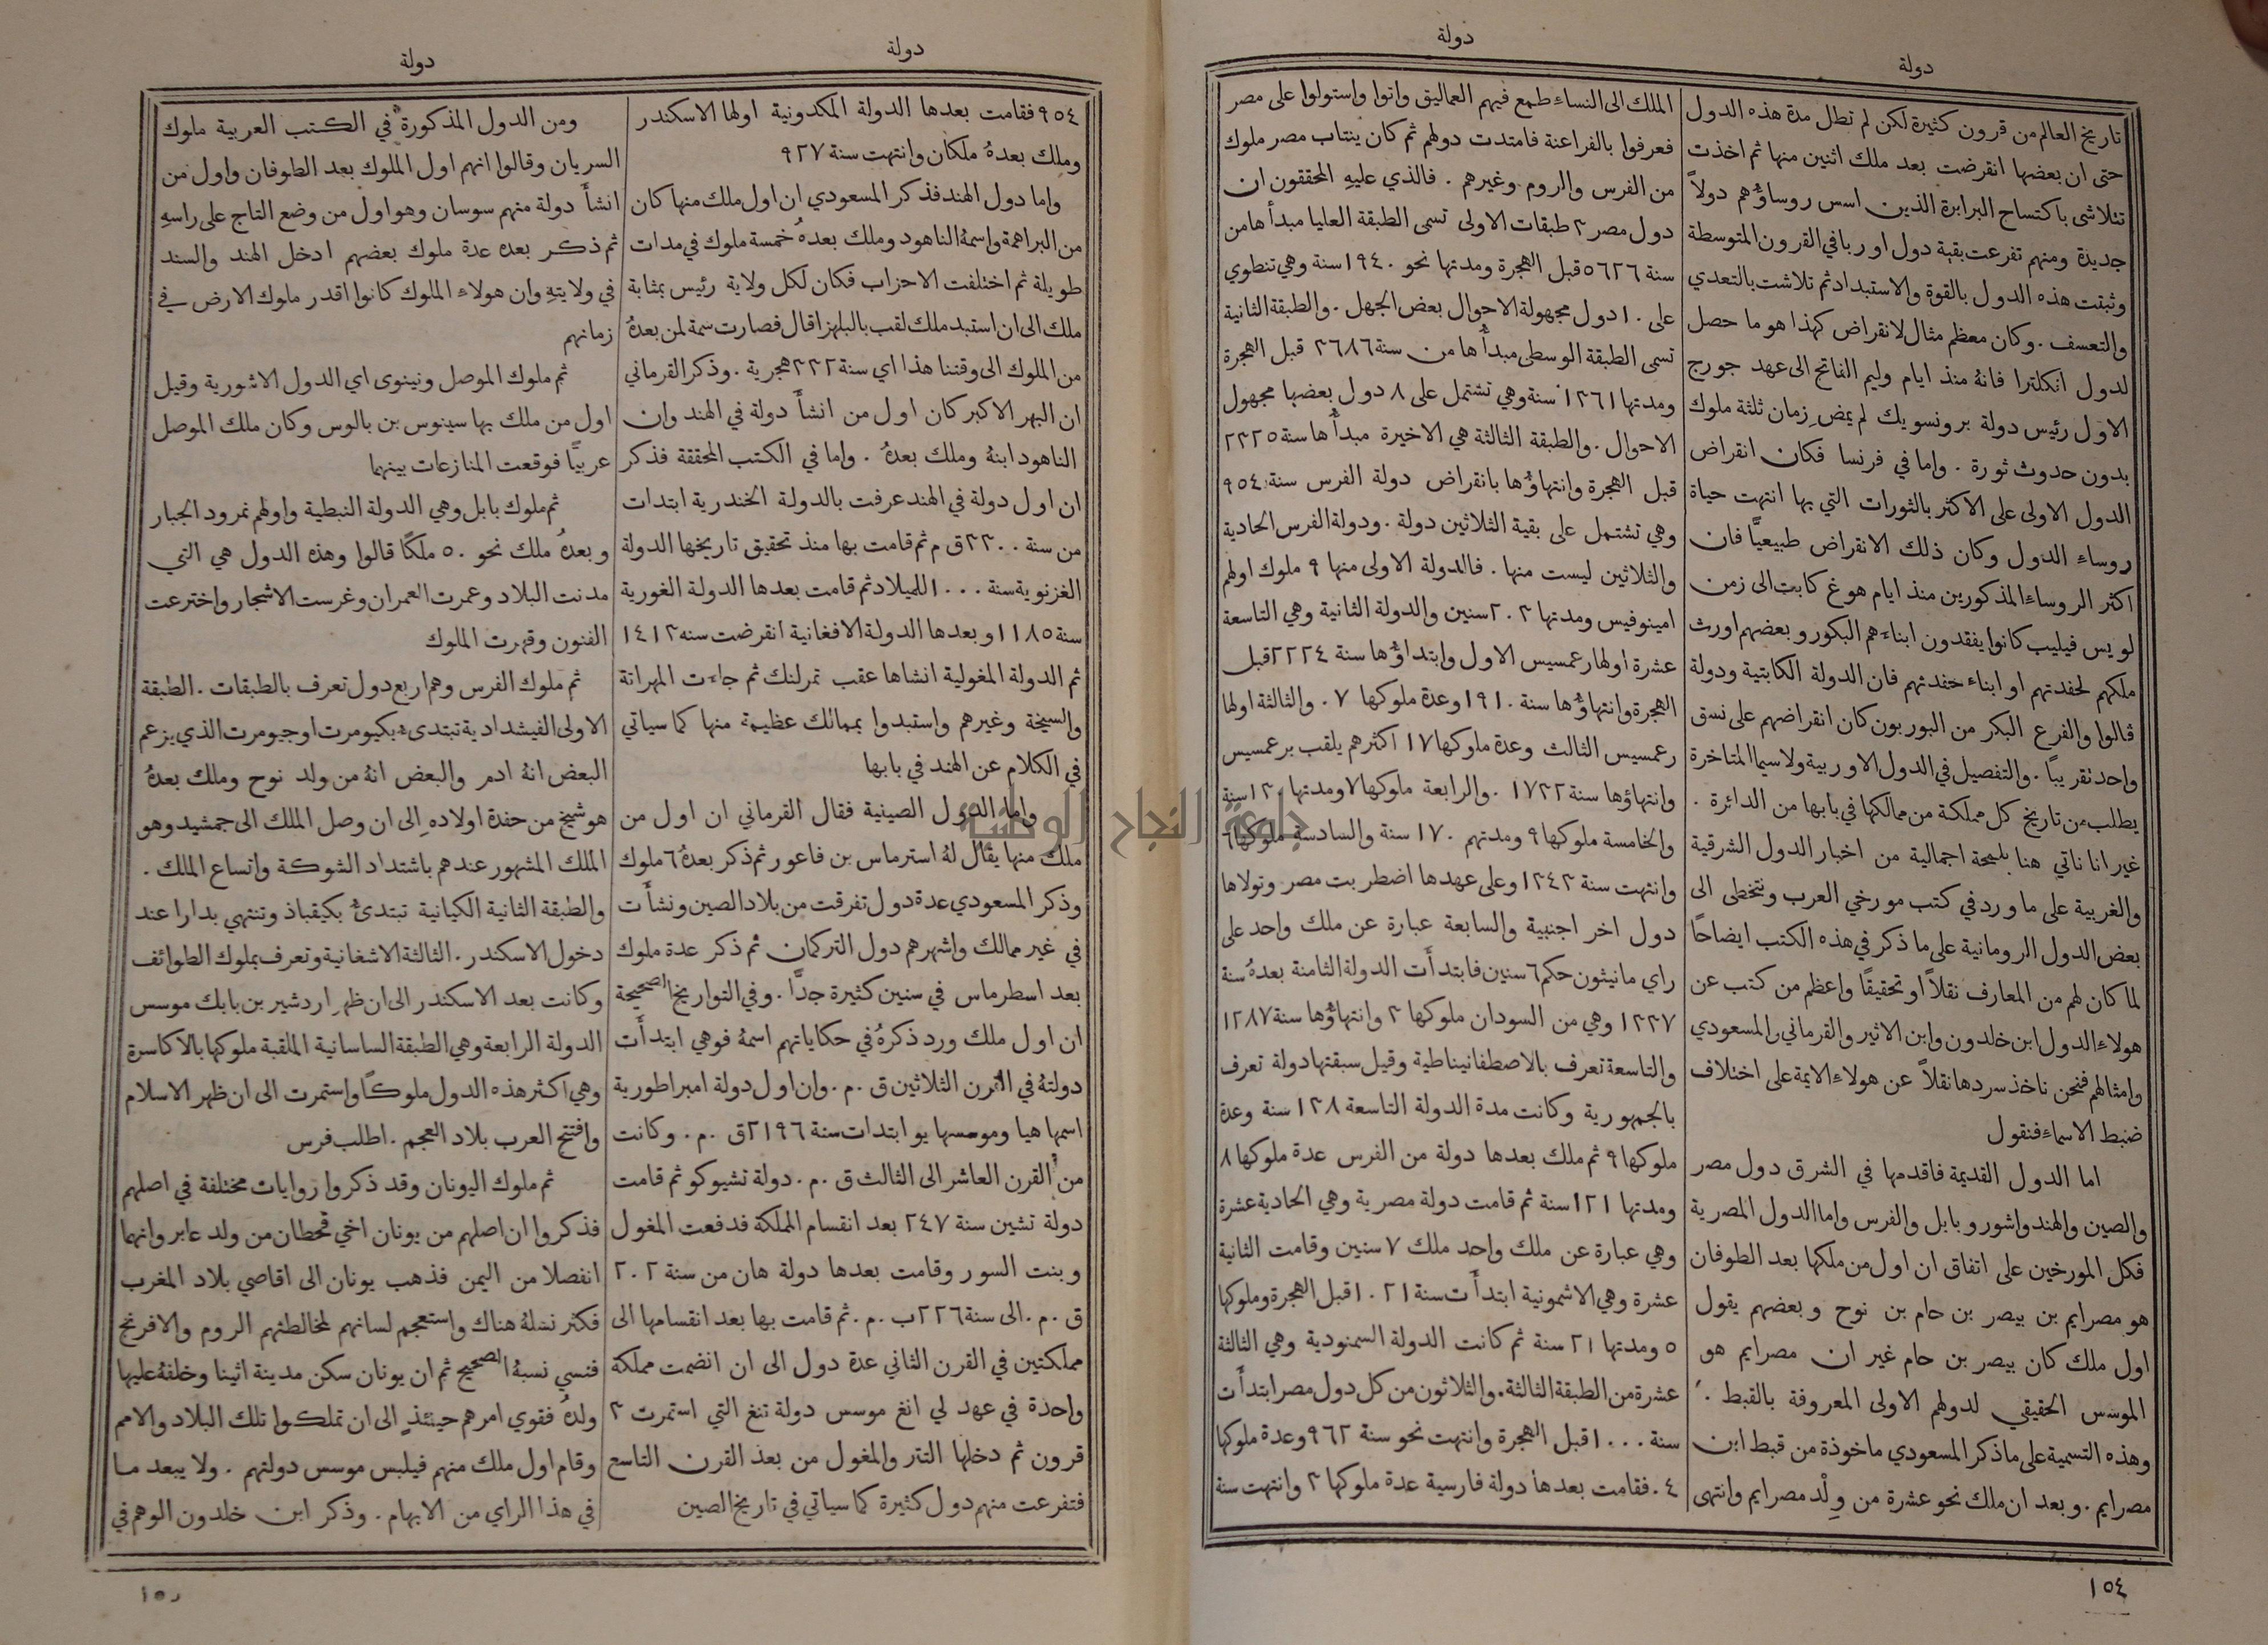 دولة
دولة
تاريخ العالم من قرون كثيرة لكن لم تطل مدة هذه الدول
حتى ان بعضها انقرضت بعد ملك اثنين منها ثم اخذت
تتلاشى باكتساح البرابرة الذين اسس روساؤهم دولاً
جديدة ومنهم تفرعت بقية دول اوربا في القرون المتوسطة
وثبتت هذه الدول بالقوة والاستبداد ثم تلاشت بالتعدي
والتعسف . وكان معظم مثال لانقراض كهذا هو ما حصل
لدول انكلترا فانهُ منذ ايام وليم الفاتح الى عهد جورج
الاول رئيس دولة برونسويك لم يمضِ زمان ثلثة ملوك
بدون حدوث ثورة . واما في فرنسا فكان انقراض
الدول الاولى على الاكثر بالثورات التي بها انتهت حياة
روساء الدول وكان ذلك الانقراض طبيعيًّا فان
اكثر الروساء المذكورين منذ ايام هوغ كابت الى زمن
لويس فيليب كانوا يفقدون ابناءهم البكور وبعضهم اورث
ملكهم لحفدتهم او ابناء حفدتهم فان الدولة الكابتية ودولة
ڤالوا والفرع البكر من البوربون كان انقراضهم على نسق
واحد تقريبًا . والتفصيل في الدول الاوربية ولا سيما المتاخرة
يطلب من تاريخ كل مملكة من ممالكها في بابها من الدائرة .
غير انا ناتي هنا بلمحة اجمالية من اخبار الدول الشرقية
والغربية على ما ورد في كتب مورخي العرب ونتخطى الى
بعض الدول الرومانية على ما ذكر في هذه الكتب ايضاحًا
لما كان لهم من المعارف نقلاً او تحقيقًا واعظم من كتب عن
هولاء الدول ابن خلدون وابن الاثير والقرماني والمسعودي
وامثالهم فنحن ناخذ سردها نقلاً عن هولاء الايمة على اختلاف
ضبط الاسماء فنقول
اما الدول القديمة فاقدمها في الشرق دول مصر
والصين والهند واشور وبابل والفرس واما الدول المصرية
فكل المورخين على اتفاق ان اول من ملكها بعد الطوفان
هو مصرايم بن بيصر بن حام بن نوح وبعضهم يقول
اول ملك كان بيصر بن حام غير ان مصرايم هو
الموسس الحقيقي لدولهم الاولى المعروفة بالقبط .
وهذه التسمية على ما ذكر المسعودي ماخوذة من قبط ابن
مصرايم . وبعد ان ملك نحو عشرة من وِلْد مصرايم وانتهى
الملك الى النساء طمع فيهم العماليق واتوا واستولوا على مصر
فعرفوا بالفراعنة فامتدت دولهم ثم كان ينتاب مصر ملوك
من الفرس والروم وغيرهم . فالذي عليهِ المحققون ان
دول مصر ٣ طبقات الاولى تسمى الطبقة العليا مبدأ ها من
سنة ٥٦٢٦ قبل الهجرة ومدتها نحو ١٩٤٠ سنة وهي تنطوي
على ١٠ دول مجهولة الاحوال بعض الجهل . والطبقة الثانية
تسمى الطبقة الوسطى مبدأ ها من سنة ٣٦٨٦ قبل الهجرة
ومدتها ١٣٦١ سنة وهي تشتمل على ٨ دول بعضها مجهول
الاحوال . والطبقة الثالثة هي الاخيرة مبدأ ها سنة ٢٣٢٥
قبل الهجرة وانتهاؤها بانقراض دولة الفرس سنة ٩٥٤
وهي تشتمل على بقية الثلاثين دولة . ودولة الفرس الحادية
والثلاثين ليست منها . فالدولة الاولى منها ٩ ملوك اولهم
امينوفيس ومدتها ٢٠٣ سنين والدولة الثانية وهي التاسعة
عشرة اولها رعمسيس الاول وابتداؤها سنة ٢٢٢٤ قبل
الهجرة وانتهاؤها سنة ١٩١٠ وعدة ملوكها ٧ . والثالثة اولها
رعمسيس الثالث وعدة ملوكها ١٧ اكثرهم يلقب برعمسيس
وانتهاؤها سنة ١٧٣٢ . والرابعة ملوكها ٧ ومدتها ١٣٠ سنة
والخامسة ملوكها ٩ ومدتهم ١٧٠ سنة والسادسة ملوكها ٦
وانتهت سنة ١٣٤٣ وعلى عهدها اضطربت مصر وتولاها
دول اخر اجنبية والسابعة عبارة عن ملك واحد على
راي مانيثون حكم ٦ سنين فابتدأت الدولة الثامنة بعدهُ سنة
١٣٣٧ وهي من السودان ملوكها ٣ وانتهاؤها سنة ١٢٨٧
والتاسعة تعرف بالاصطفانيناطية وقيل سبقتها دولة تعرف
بالجمهورية وكانت مدة الدولة التاسعة ١٣٨ سنة وعدة
ملوكها ٩ ثم ملك بعدها دولة من الفرس عدة ملوكها ٨
ومدتها ١٢١ سنة ثم قامت دولة مصرية وهي الحادية عشرة
وهي عبارة عن ملك واحد ملك ٧ سنين وقامت الثانية
عشرة وهي الاشمونية ابتدأت سنة ١٠٢١ قبل الهجرة وملوكها
٥ ومدتها ٢١ سنة ثم كانت الدولة السمنودية وهي الثالثة
عشرة من الطبقة الثالثة . والثلاثون من كل دول مصر ابتدأت
سنة ١٠٠٠ قبل الهجرة وانتهت نحو سنة ٩٦٢ وعدة ملوكها
٤ . فقامت بعدها دولة فارسية عدة ملوكها ٣ وانتهت سنة
١٥٤
دولة
دولة
٩٥٤ فقامت بعدها الدولة المكدونية اولها الاسكندر
وملك بعدهُ ملكان وانتهت سنة ٩٢٧
واما دول الهند فذكر المسعودي ان اول ملك منها كان
من البراهمة واسمهُ الناهود وملك بعدهُ خمسة ملوك في مدات
طويلة ثم اختلفت الاحزاب فكان لكل ولاية رئيس بمثابة
ملك الى ان استبد ملك لقب بالبلهرا قال فصارت سمة لمن بعدهُ
من الملوك الى وقتنا هذا اي سنة ٣٣٢ هجرية . وذكر القرماني
ان البهر الاكبر كان اول من انشأ دولة في الهند وان
الناهود ابنهُ وملك بعدهُ . واما في الكتب المحققة فذكر
ان اول دولة في الهند عرفت بالدولة الخندرية ابتدات
من سنة ٣٣٠٠ ق م ثم قامت بها منذ تحقيق تاريخها الدولة
الغزنوية سنة ١٠٠٠ للميلاد ثم قامت بعدها الدولة الغورية
سنة ١١٨٥ وبعدها الدولة الافغانية انقرضت سنه ١٤١٣
ثم الدولة المغولية انشاها عقب تمرلنك ثم جاءت المهراتة
والسيخة وغيرهم واستبدوا بممالك عظيمة منها كما سياتي
في الكلام عن الهند في بابها
واما الدول الصينية فقال القرماني ان اول من
ملك منها يقال لهُ استرماس بن فاعور ثم ذكر بعدهُ ٦ ملوك
وذكر المسعودي عدة دول تفرقت من بلاد الصين ونشأت
في غير ممالك واشهرهم دول التركمان ثم ذكر عدة ملوك
بعد اسطرماس في سنين كثيرة جدًّا . وفي التواريخ الصحيحة
ان اول ملك ورد ذكرهُ في حكاياتهم اسمهُ فوهي ابتدأت
دولتهُ في القرن الثلاثين ق . م . وان اول دولة امبراطورية
اسمها هيا وموسسها يو ابتدات سنة ٢١٩٦ ق . م . وكانت
من القرن العاشر الى الثالث ق . م . دولة تشيوكو ثم قامت
دولة تشين سنة ٢٤٧ بعد انقسام المملكة فدفعت المغول
وبنت السور وقامت بعدها دولة هان من سنة ٢٠٢
ق . م . الى سنة ٢٢٦ ب . م . ثم قامت بها بعد انقسامها الى
مملكتين في القرن الثاني عدة دول الى ان انضمت مملكة
واحدة في عهد لي انغ موسس دولة تنغ التي استمرت ٣
قرون ثم دخلها التتر والمغول من بعد القرن التاسع
فتفرعت منهم دول كثيرة كما سياتي في تاريخ الصين
ومن الدول المذكورة في الكتب العربية ملوك
السريان وقالوا انهم اول الملوك بعد الطوفان واول من
انشأ دولة منهم سوسان وهو اول من وضع التاج على راسهِ
ثم ذكر بعده عدة ملوك بعضهم ادخل الهند والسند
في ولايتهِ وان هولاء الملوك كانوا اقدر ملوك الارض في
زمانهم
ثم ملوك الموصل ونينوى اي الدول الاشورية وقيل
اول من ملك بها سينوس بن بالوس وكان ملك الموصل
عربيًّا فوقعت المنازعات بينهما
ثم ملوك بابل وهي الدولة النبطية واولهم نمرود الجبار
وبعدهُ ملك نحو ٥٠ ملكًا قالوا وهذه الدول هي التي
مدنت البلاد وعمرت العمران وغرست الاشجار واخترعت
الفنون وقهرت الملوك
ثم ملوك الفرس وهم اربع دول تعرف بالطبقات . الطبقة
الاولى الفيشدادية تبتدىء بكيومرت او جيومرت الذي يزعم
البعض انهُ ادم والبعض انهُ من ولد نوح وملك بعدهُ
هوشيخ من حفدة اولادهِ الى ان وصل الملك الى جمشيد وهو
الملك المشهور عندهم باشتداد الشوكة واتساع الملك .
والطبقة الثانية الكيانية تبتدئ بكيقباذ وتنتهي بدارا عند
دخول الاسكندر . الثالثة الاشغانية وتعرف بملوك الطوائف
وكانت بعد الاسكندر الى ان ظهر اردشير بن بابك موسس
الدولة الرابعة وهي الطبقة الساسانية الملقبة ملوكها بالاكاسرة
وهي اكثر هذه الدول ملوكًا واستمرت الى ان ظهر الاسلام
وافتتح العرب بلاد العجم . اطلب فرس
ثم ملوك اليونان وقد ذكروا روايات مختلفة في اصلهم
فذكروا ان اصلهم من يونان اخي قحطان من ولد عابر وانهما
انفصلا من اليمن فذهب يونان الى اقاصي بلاد المغرب
فكثر نسلهُ هناك واستعجم لسانهم لمخالطتهم الروم والافرنج
فنسي نسبهُ الصحيح ثم ان يونان سكن مدينة اثينا وخلفهُ عليها
ولدهُ فقوي امرهم حينئذٍ الى ان تملكوا تلك البلاد والامم
وقام اول ملك منهم فيلبس موسس دولتهم . ولا يبعد ما
في هذا الراي من الابهام . وذكر ابن خلدون الوهم في
١٥٥
جامعة النجاح الوطنية